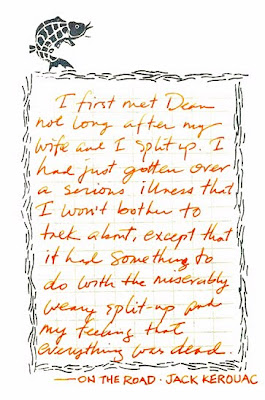 I first met Dean
not long after my
wife and I split up. I
had just gotten over
a serious illness that
I won't bother to
talk about, except that
it had something to
do with the miserably
weary split-up and
my feeling that
everything was dead.
—ON THE ROAD · JACK KEROUAC